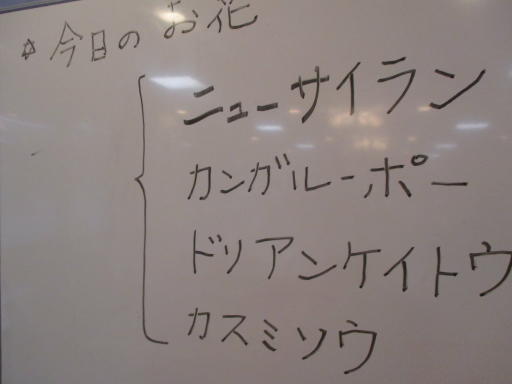 ☆今日のお花
ニューサイラン
カンガルーポー
ドリアンケイトウ
カスミソウ